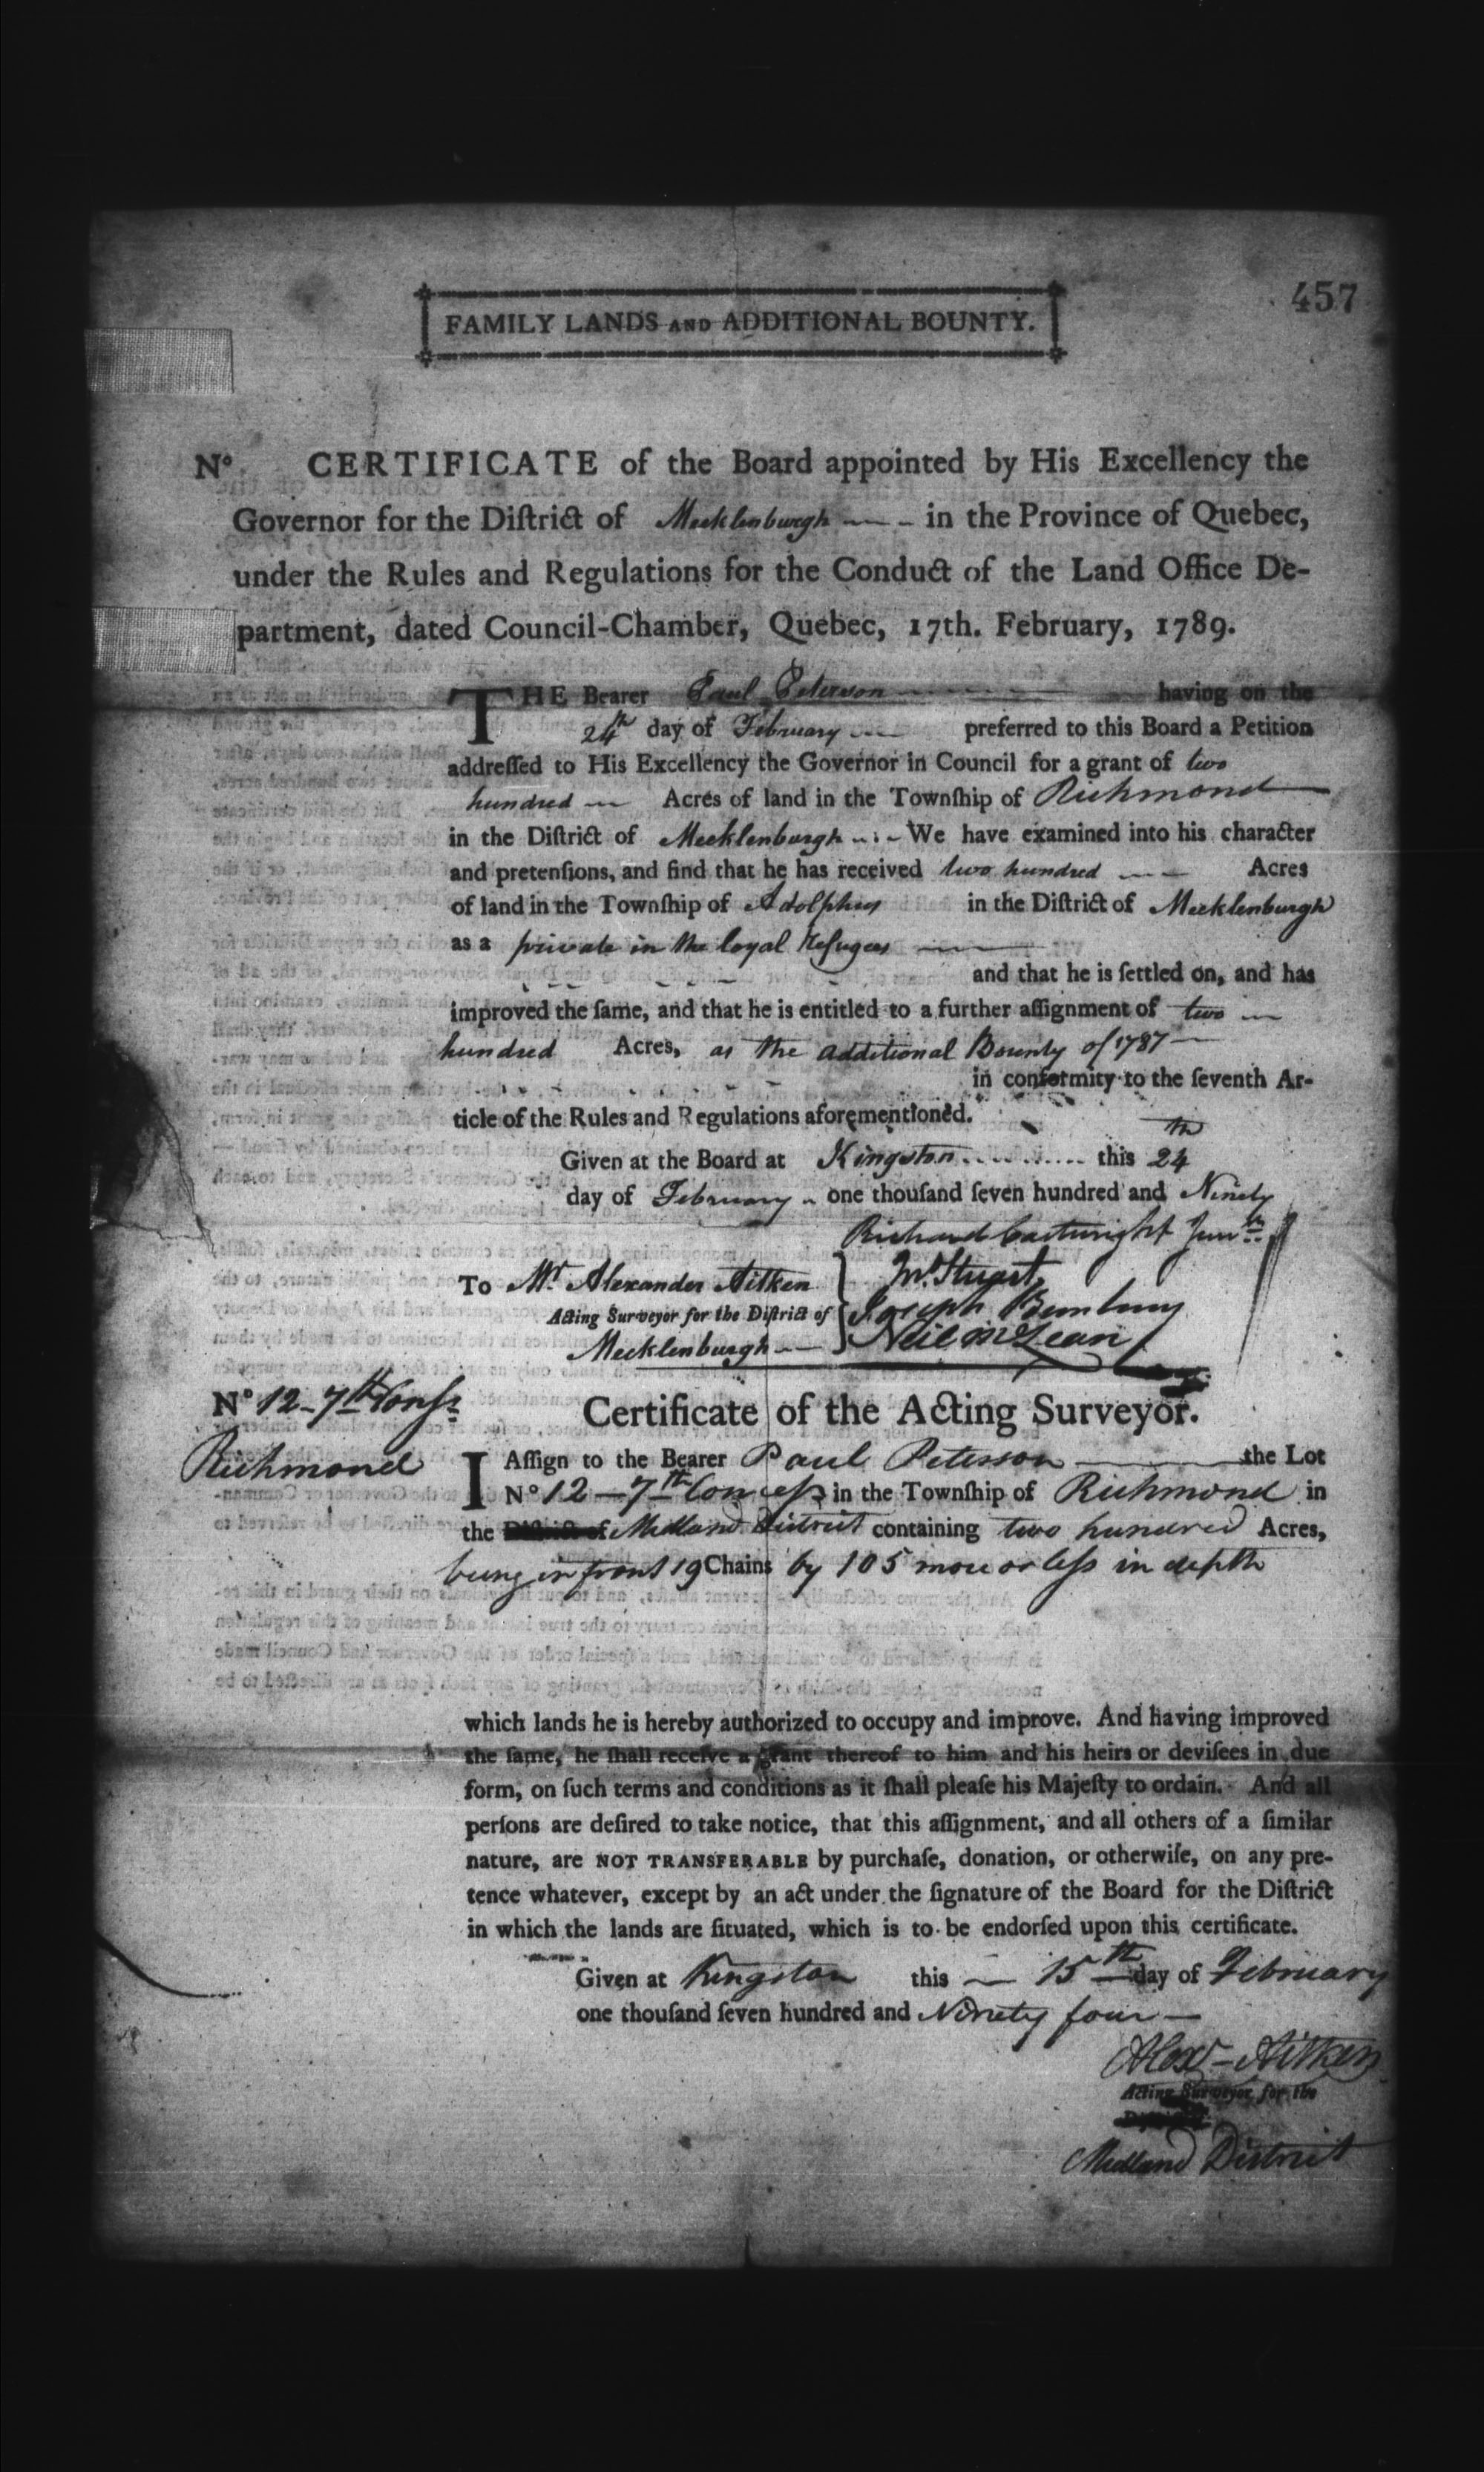 457
FAMILY LANDS AND ADDITIONAL BOUNTY.
No. CERTIFICATE of the Board appointed by His Excellency the
Governor for the Diſtrict of Mecklenburgh in the Province of Quebec,
under the Rules and Regulations for the Conduct of the Land Office De-
partment, dated Council-Chamber, Quebec, 17th. February, 1789.
THE Bearer Paul Peterson having on the
24th day of February preferred to this Board a Petition
addreſſed to His Excellency the Governor in Council for a grant of two
hundred Acres of land in the Townſhip of Richmond
in the Diſtrict of Mecklenburgh We have examined into his character
and pretenſions, and find that he has received two hundred Acres
of land in the Townſhip of Adolphus in the Diſtrict of Mecklenburgh
as a private in the loyal Refugees
and that he is ſettled on, and has
improved the ſame, and that he is entitled to a further aſſignment of two
hundred Acres, as the additional Bounty of 1787
in conformity to the ſeventh Ar-
ticle of the Rules and Regulations aforementioned.
Given at the Board at Kingston this 24th
day of February one thouſand ſeven hundred and Ninety
Richard Cartwright Junr
To Mr Alexander Aitken
Acting Surveyor for the Diſtrict of
Mecklenburgh
Jno. Stuart
Joseph
Neil McLean
No 12 - 7th Conſs
Richmond
Certificate of the Acting Surveyor.
I Aſſign to the Bearer Paul Peterson the Lot
No 12 - 7th Conceſs in the Townſhip of Richmond in
the District of Midland District containing two hundred Acres,
being in front 19 Chains by 105 more or leſs in depth
which lands he is hereby authorized to occupy and improve. And having improved
the ſame, he ſhall receive a grant thereof to him and his heirs or deviſees in due
form, on ſuch terms and conditions as it ſhall pleaſe his Majeſty to ordain. And all
perſons are deſired to take notice, that this aſſignment, and all others of a ſimilar
nature, are NOT TRANSFERABLE by purchaſe, donation, or otherwiſe, on any pre-
tence whatever, except by an act under the ſignature of the Board for the Diſtrict
in which the lands are ſituated, which is to be endorſed upon this certificate.
Given at Kingston this 15th day of February
one thouſand ſeven hundred and Ninety four
Alexr Aitken
Acting Surveyor for the
Midland District